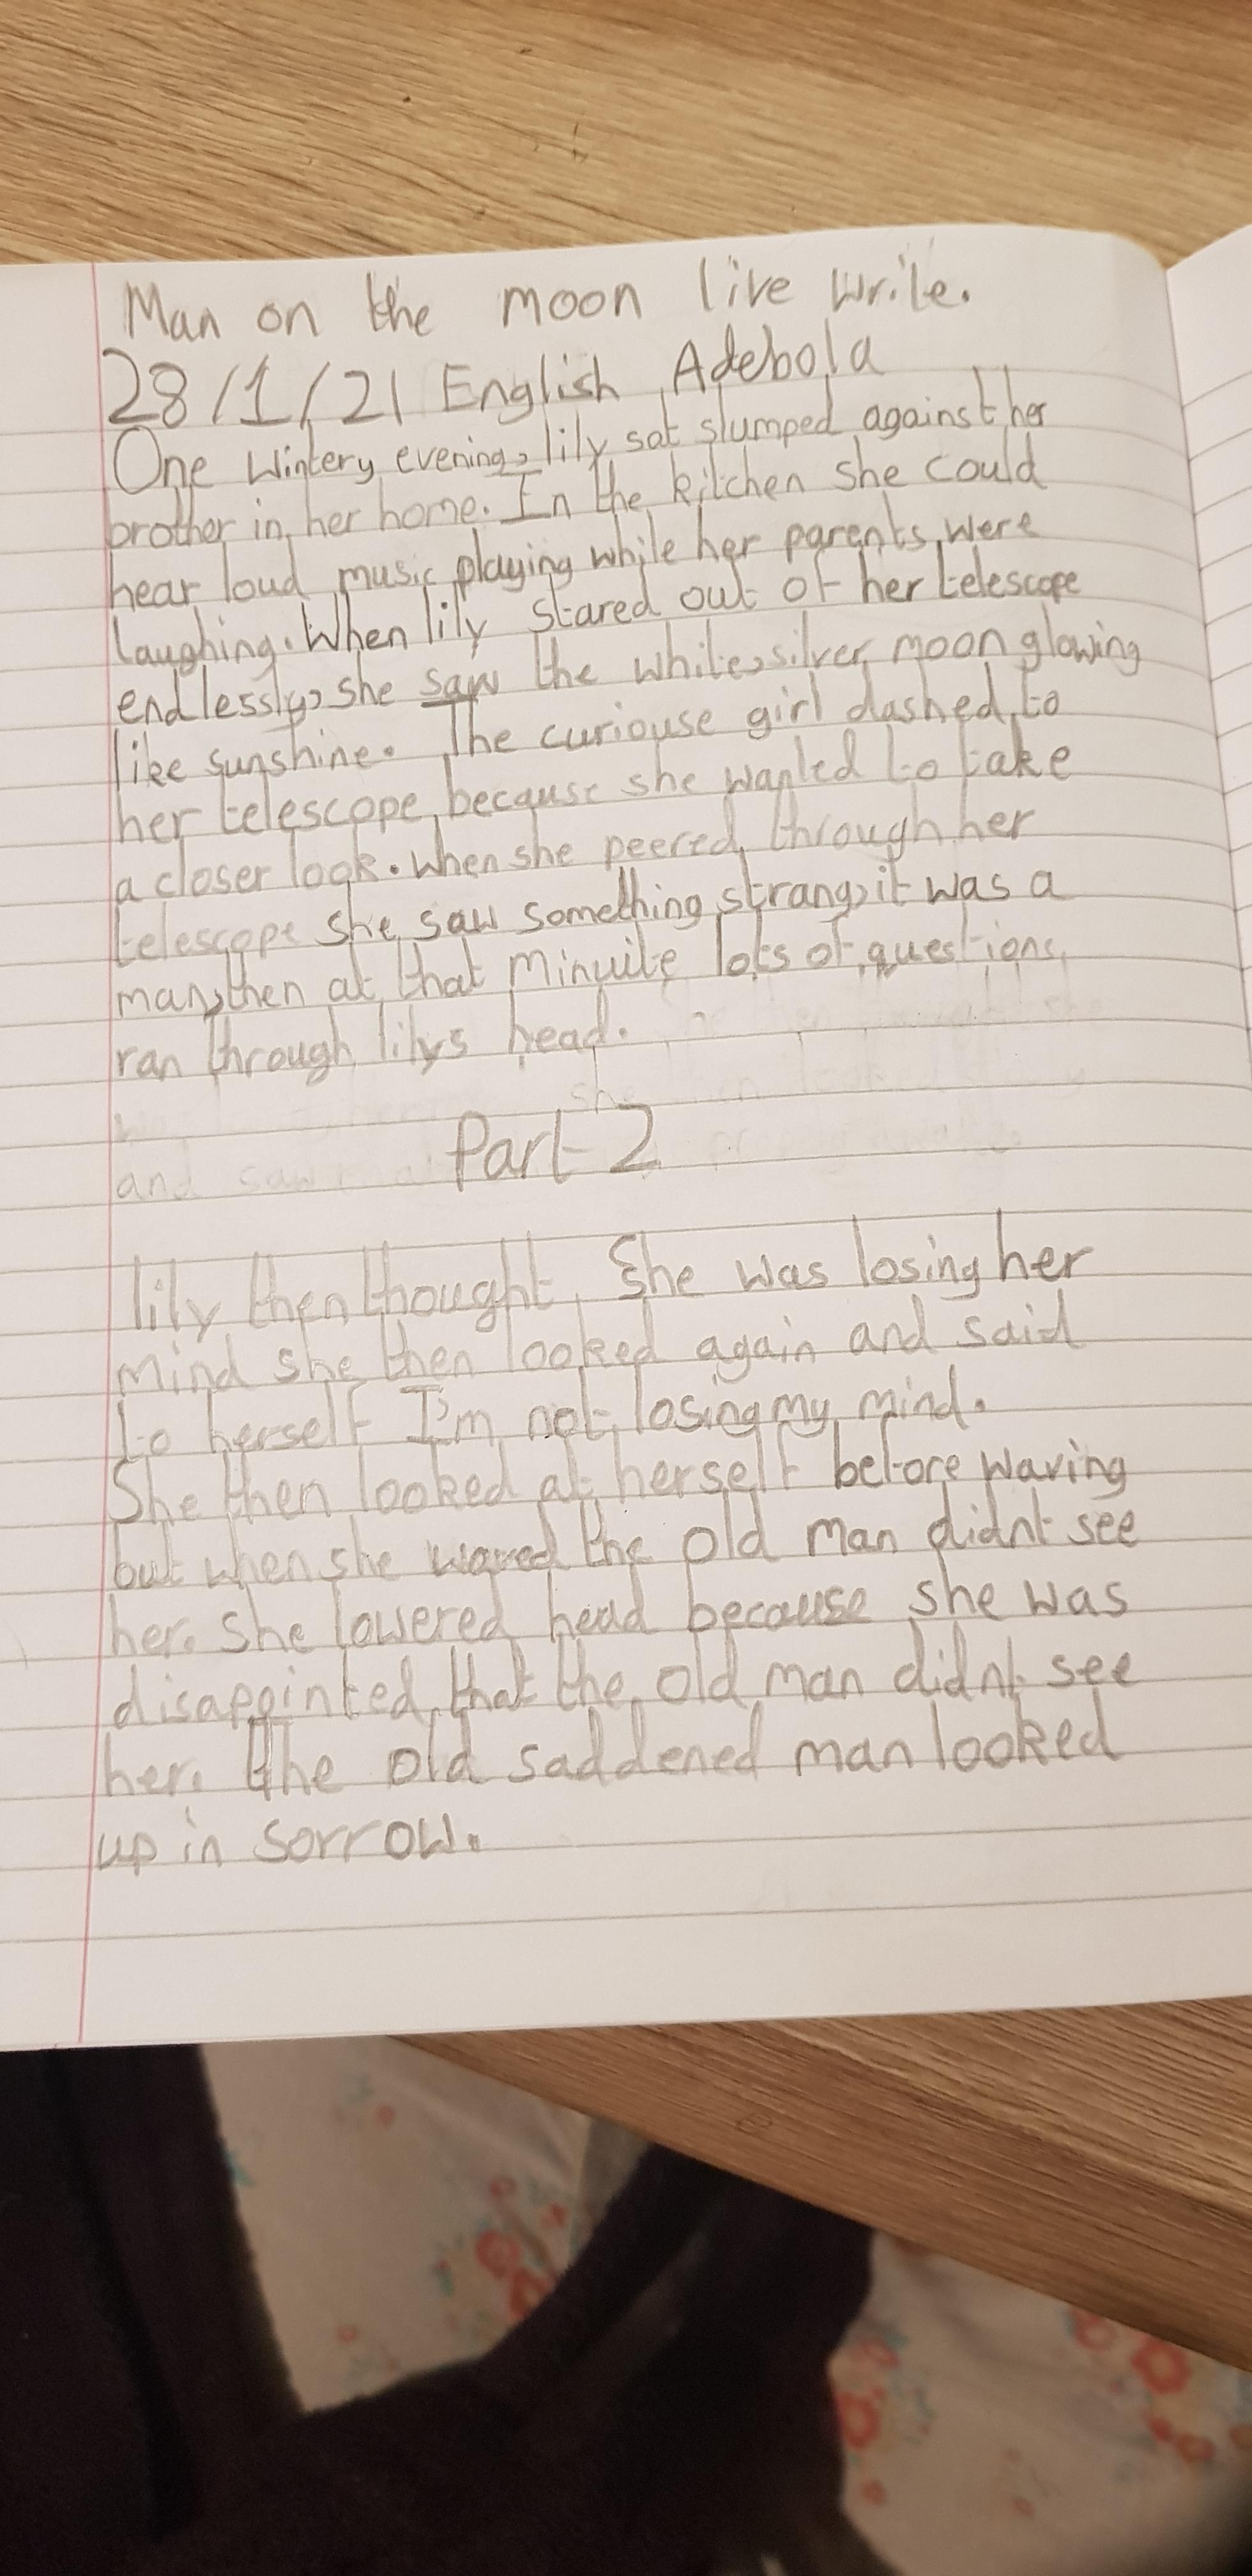 Man on the moon live write.
28/1/21 English Adebola
One wintery evening, lily sat slumped against her
brother in her home. In the kitchen she could
hear loud music playing while her parents were
laughing. When lily stared out of her telescope
endlessly, she saw the white, silver moon glowing
like sunshine. The curiouse girl dashed to
her telescope because she wanted to take
a closer look. When she peered through her
telescope she saw something strang, it was a
man, then at that minuite lots of questions
ran through lilys head.
Part 2
lily then thought She was losing her
mind she then looked again and said
to herself I'm not losing my mind.
She then looked at herself before waving
but when she waved the old man didnt see
her. She lowered head because she was
disappointed that the old man didnt see
her. The old saddened man looked
up in sorrow.